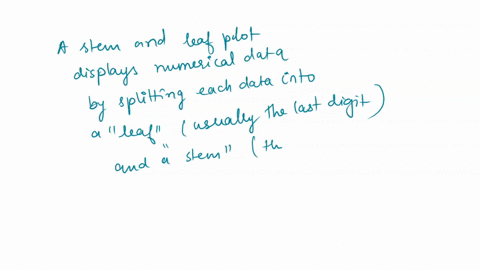 A stem and leaf plot
displays numerical data
by splitting each data into
a "leaf" (usually the last digit)
and a "stem" (th